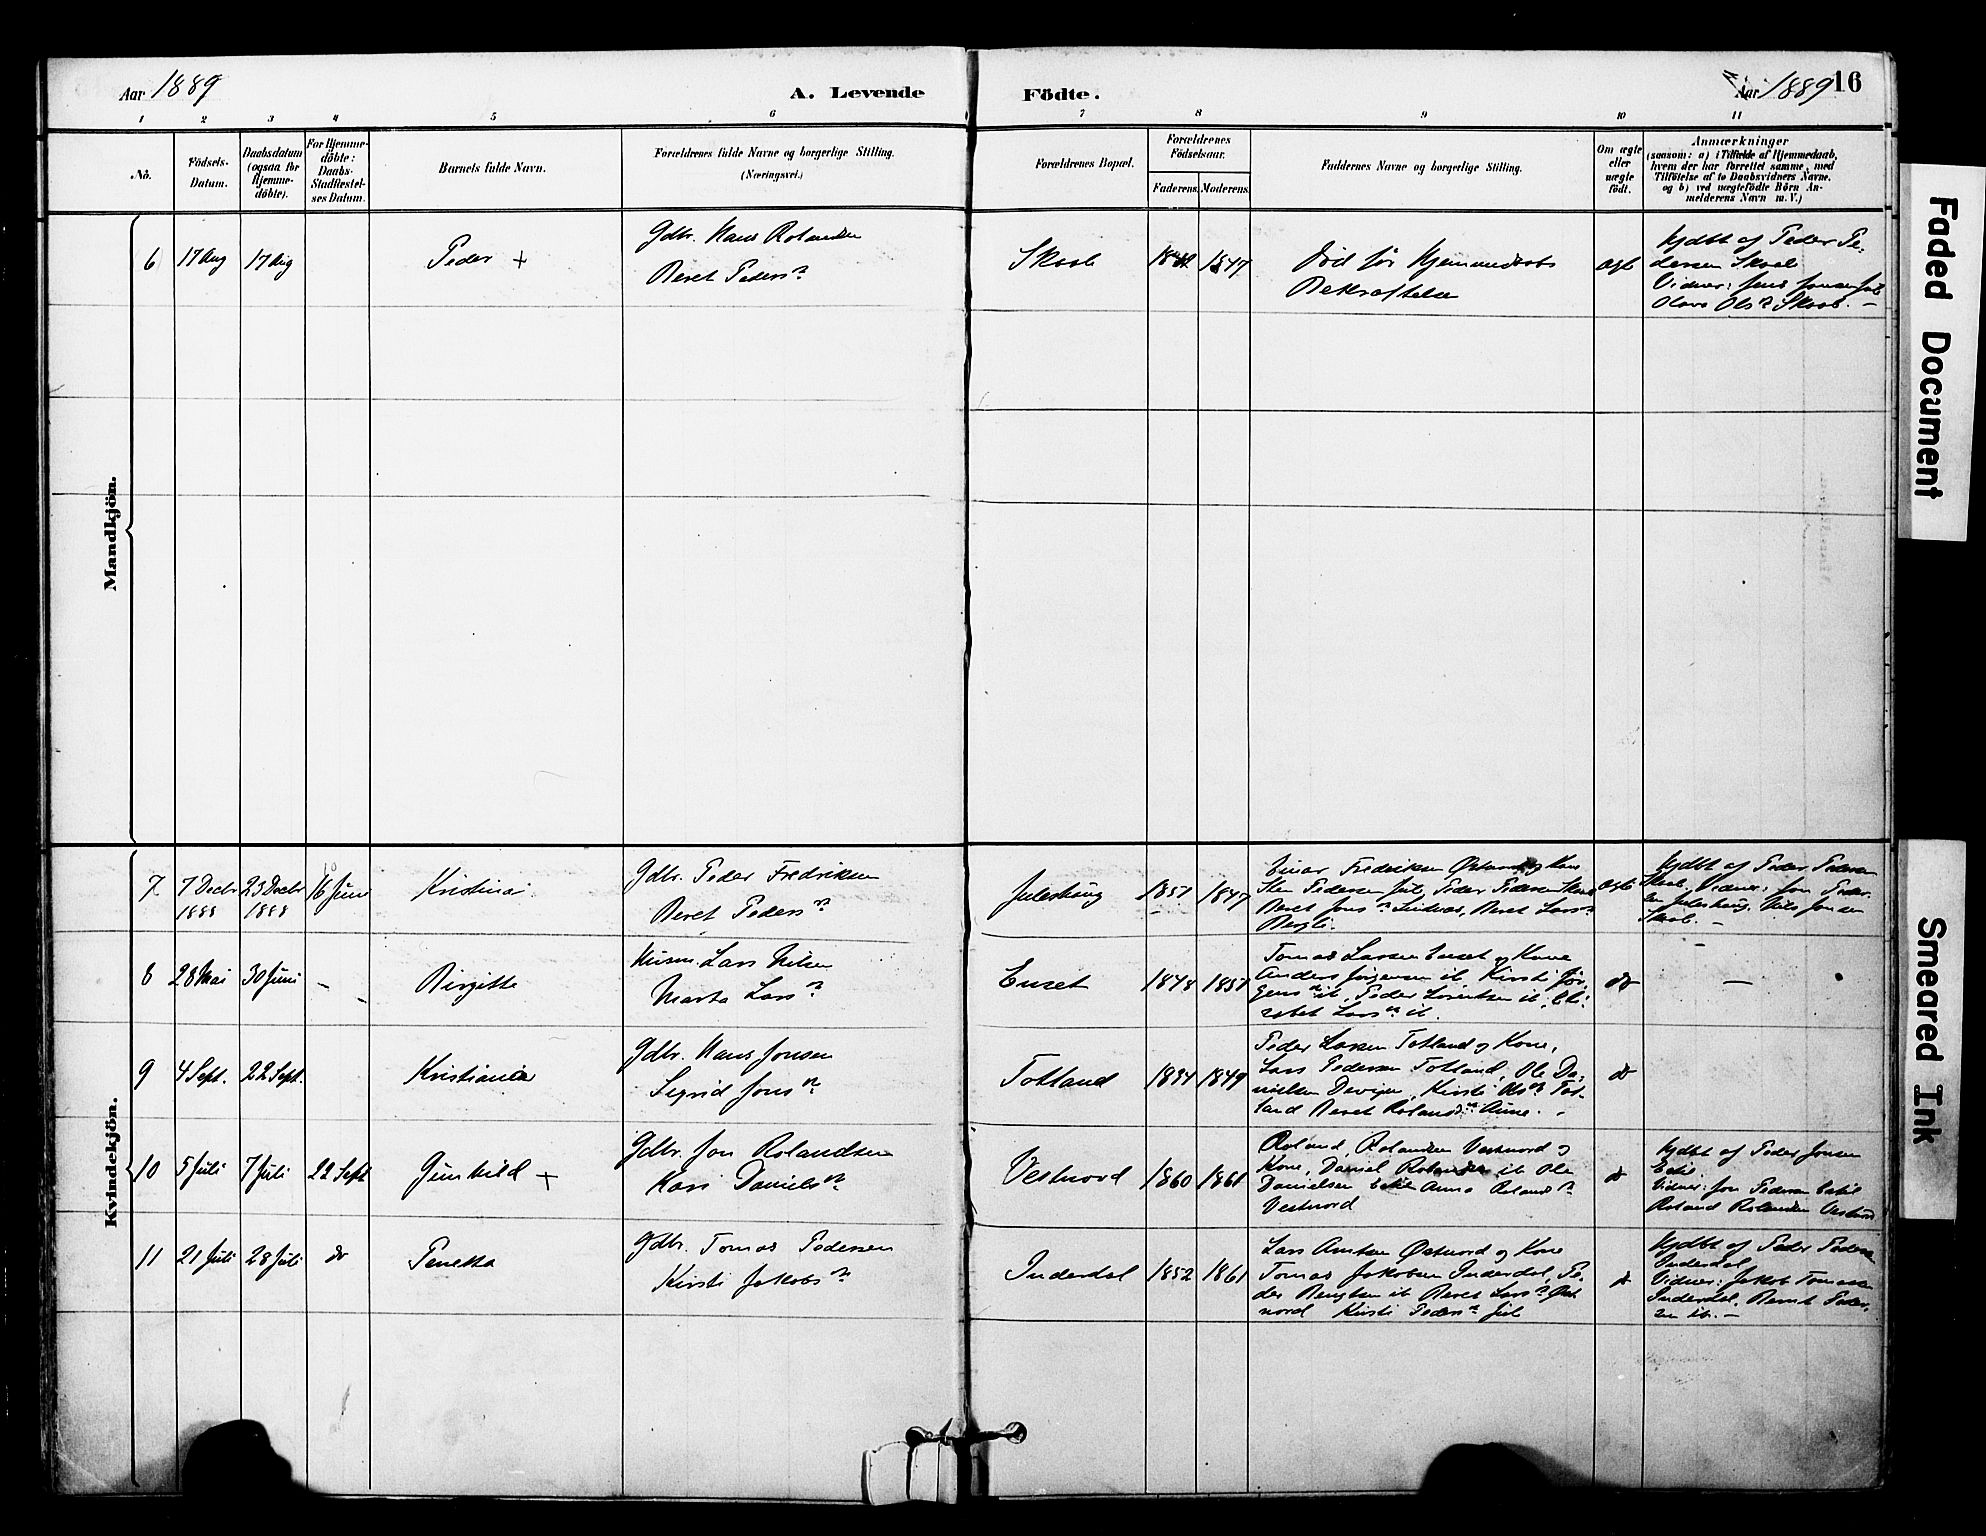 Aar 1889
A. Levende
Födte.
Aar 1889
16
1 2 3 4 5 6 7 8 9 10 11
No.
Födsels-
Datum.
Daabsdatum
(ogsaa for
Hjemme-
döbte).
For Hjemme-
döbte:
Daabs-
Stadfæstel-
ses Datum.
Barnets fulde Navn.
Forældrenes fulde Navne og borgerlige Stilling.
(Næringsvei.)
Forældrenes Bopæl.
Forældrenes
Födselsaar.
Faderens. Moderens.
Faddernes Navne og borgerlige Stilling.
Om ægte
eller
uægte
födt.
Anmærkninger
(saasom: a) i Tilfælde af Hjemmedaab,
hvem der har forrettet samme, med
Tilföielse af to Daabsvidners Navne,
og b) ved uægtefödte Börn An-
melderens Navn m. V.)
Mandkjön.
6
17 Aug
17 Aug
Peder +
Gdbr. Hans Rolandsen
Beret Pedersn
Skaal
1847
Död før Hjemmedaabs
Bekræftelse
Ægte
Hjdbt af Peder Pe-
dersen Skaal
Vidner: Jens Jonsen Jul
Olava Olsn Skaal. —
Kvindekjön.
7
7 Decbr
1888
23 Decbr
1888
16 Juni
Kristina
Gdbr. Peder Fredriksen
Beret Pedersn
Juleshaug
1851
1847
Einar Fredriksen Østnord og Kone
Sten Pedersen Jul, Peder Pedersen Skaal
Beret Jonsn Lidnes, Beret Larsn
Bergli.
Ægte
Hjdbt af Peder Pedersen
Skaal. Vidner: Jon Peder-
sen Juleshaug, Nils Jonsen
Skaal. —
8
28 Mai
30 Juni
—
Birgitte
Husm. Lars Nilsen
Marta Larsn
Euset
1848
1851
Tomas Larsen Euset og Kone
Anders Jørgensen ib. Kirsti Jør-
gensn ib, Peder Lorentsen ib, Eli-
sabet Larsn ib.
do
—
9
4 Sept.
22 Sept.
Kristiania
Gdbr. Hans Jonsen
Sigrid Jonsn
Totland
1834
1849
Peder Larsen Totland og Kone,
Lars Pedersen Totland, Ole Da-
nielsen Devigen, Kirsti Olsn Tot-
land Beret Rolandsn Aune.
do
10
5 Juli
7 Juli
22 Sept
Gunhild +
Gdbr. Jon Rolandsen
Kari Danielsn
Vestnord
1860
1861
Roland Rolandsen Vestnord og
Kone, Daniel Rolandsen ib Ole
Danielsen Anna Rolandsn
Vestnord
do
Hjdbt af Peder Jonsen
Vidner: Jon Pedersen
Roland Rolandsen Vestnord
11
21 Juli
28 Juli
do
Penetta
Gdbr. Tomas Pedersen
Kirsti Jakobsn
Inderdal
1852
1861
Lars Arntsen Østnord og Kone
Tomas Jakobsen Inderdal, Pe-
der Bengtsen ib Beret Larsn Øst
nord Kirsti Pedersn Jul
do
Hjdbt af Peder Pedersen
Inderdal,
Vidner: Jakob Tomassen
Inderdal, Bernt Peder-
sen ib. —
Faded Document
Smeared Ink